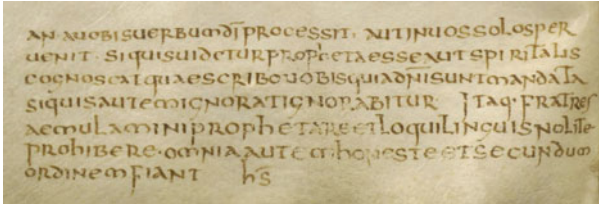 AN·AUOBISUERBUMDĪPROCESSIT. AUTINUOSSOLOSPER
UENIT·SIQUISUIDETURPROPHETAESSEAUTSPIRITALIS
COGNOSCATQUIAESCRIBOUOBISQUIADNISUNTMANDATA
SIQUISAUTEMIGNORATIGNORABITUR ITAQ·FRATRES
AEMULAMINIPROPHETAREETLOQUILINGUISNOLITE
PROHIBERE·OMNIAAUTEMHONESTEETSECUNDUM
ORDINEMFIANT